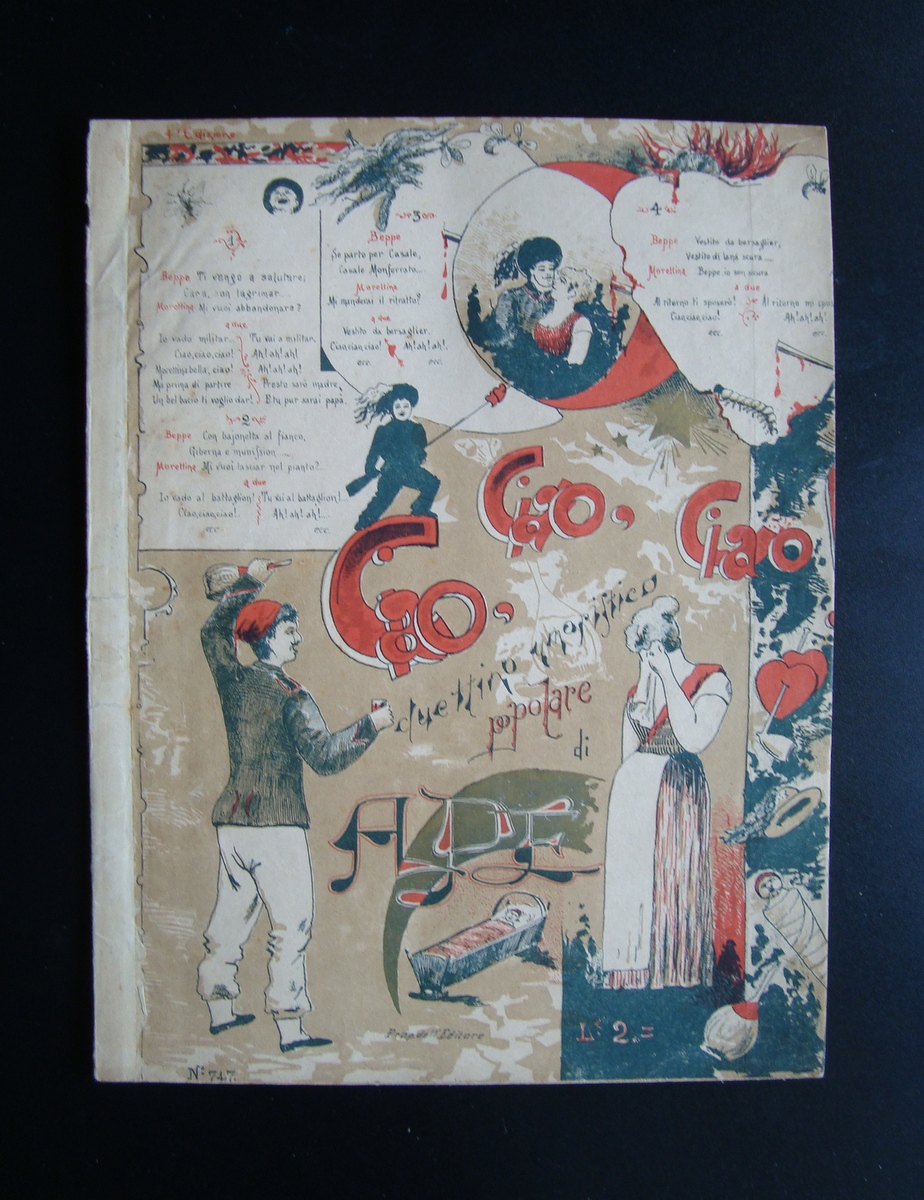 4ª Edizione
1
Beppe Ti vengo a salutare;
Cara, non lagrimar....
Morettina Mi vuoi abbandonare?
a due
Io vado militar... Tu vai a militar,
Ciao,ciao,ciao! Ah!ah!ah!
Morettina bella, ciao! Ah!ah!ah!
Ma prima di partire Presto sarò madre,
Un bel bacio ti voglio dar! E tu pur sarai papà.
2
Beppe Con bajonetta al fianco,
Giberna e munission ....
Morettina Mi vuoi lasciar nel pianto?..
a due
Io vado al battaglion! Tu vai al battaglion!...
Ciao,ciao,ciao! Ah!ah!ah!...
ecc. ecc.
3
Beppe
Se parto per Casale,
Casale Monferrato....
Morettina
Mi manderai il ritratto?
a due
Vestito da bersaglier.
Ciao,ciao,ciao! Ah!ah!ah!
ecc. ecc.
4
Beppe Vestito da bersaglier,
Vestito di lana scura....
Morettina Beppe, io son sicura
a due
Al ritorno ti sposerò! Al ritorno mi spos
Ciao,ciao,ciao! Ah!ah!ah!
ecc.
Ciao, Ciao, Ciao
duettino umoristico
popolare
di
APE
Prop. dell' Editore
Ls 2.=
N: 747.